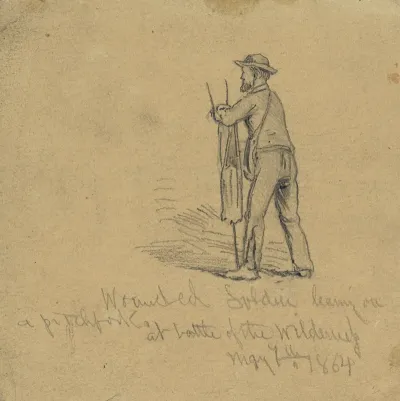 Wounded Soldier leaning on
a pitchfork at battle of the Wilderness
May 7th 1864